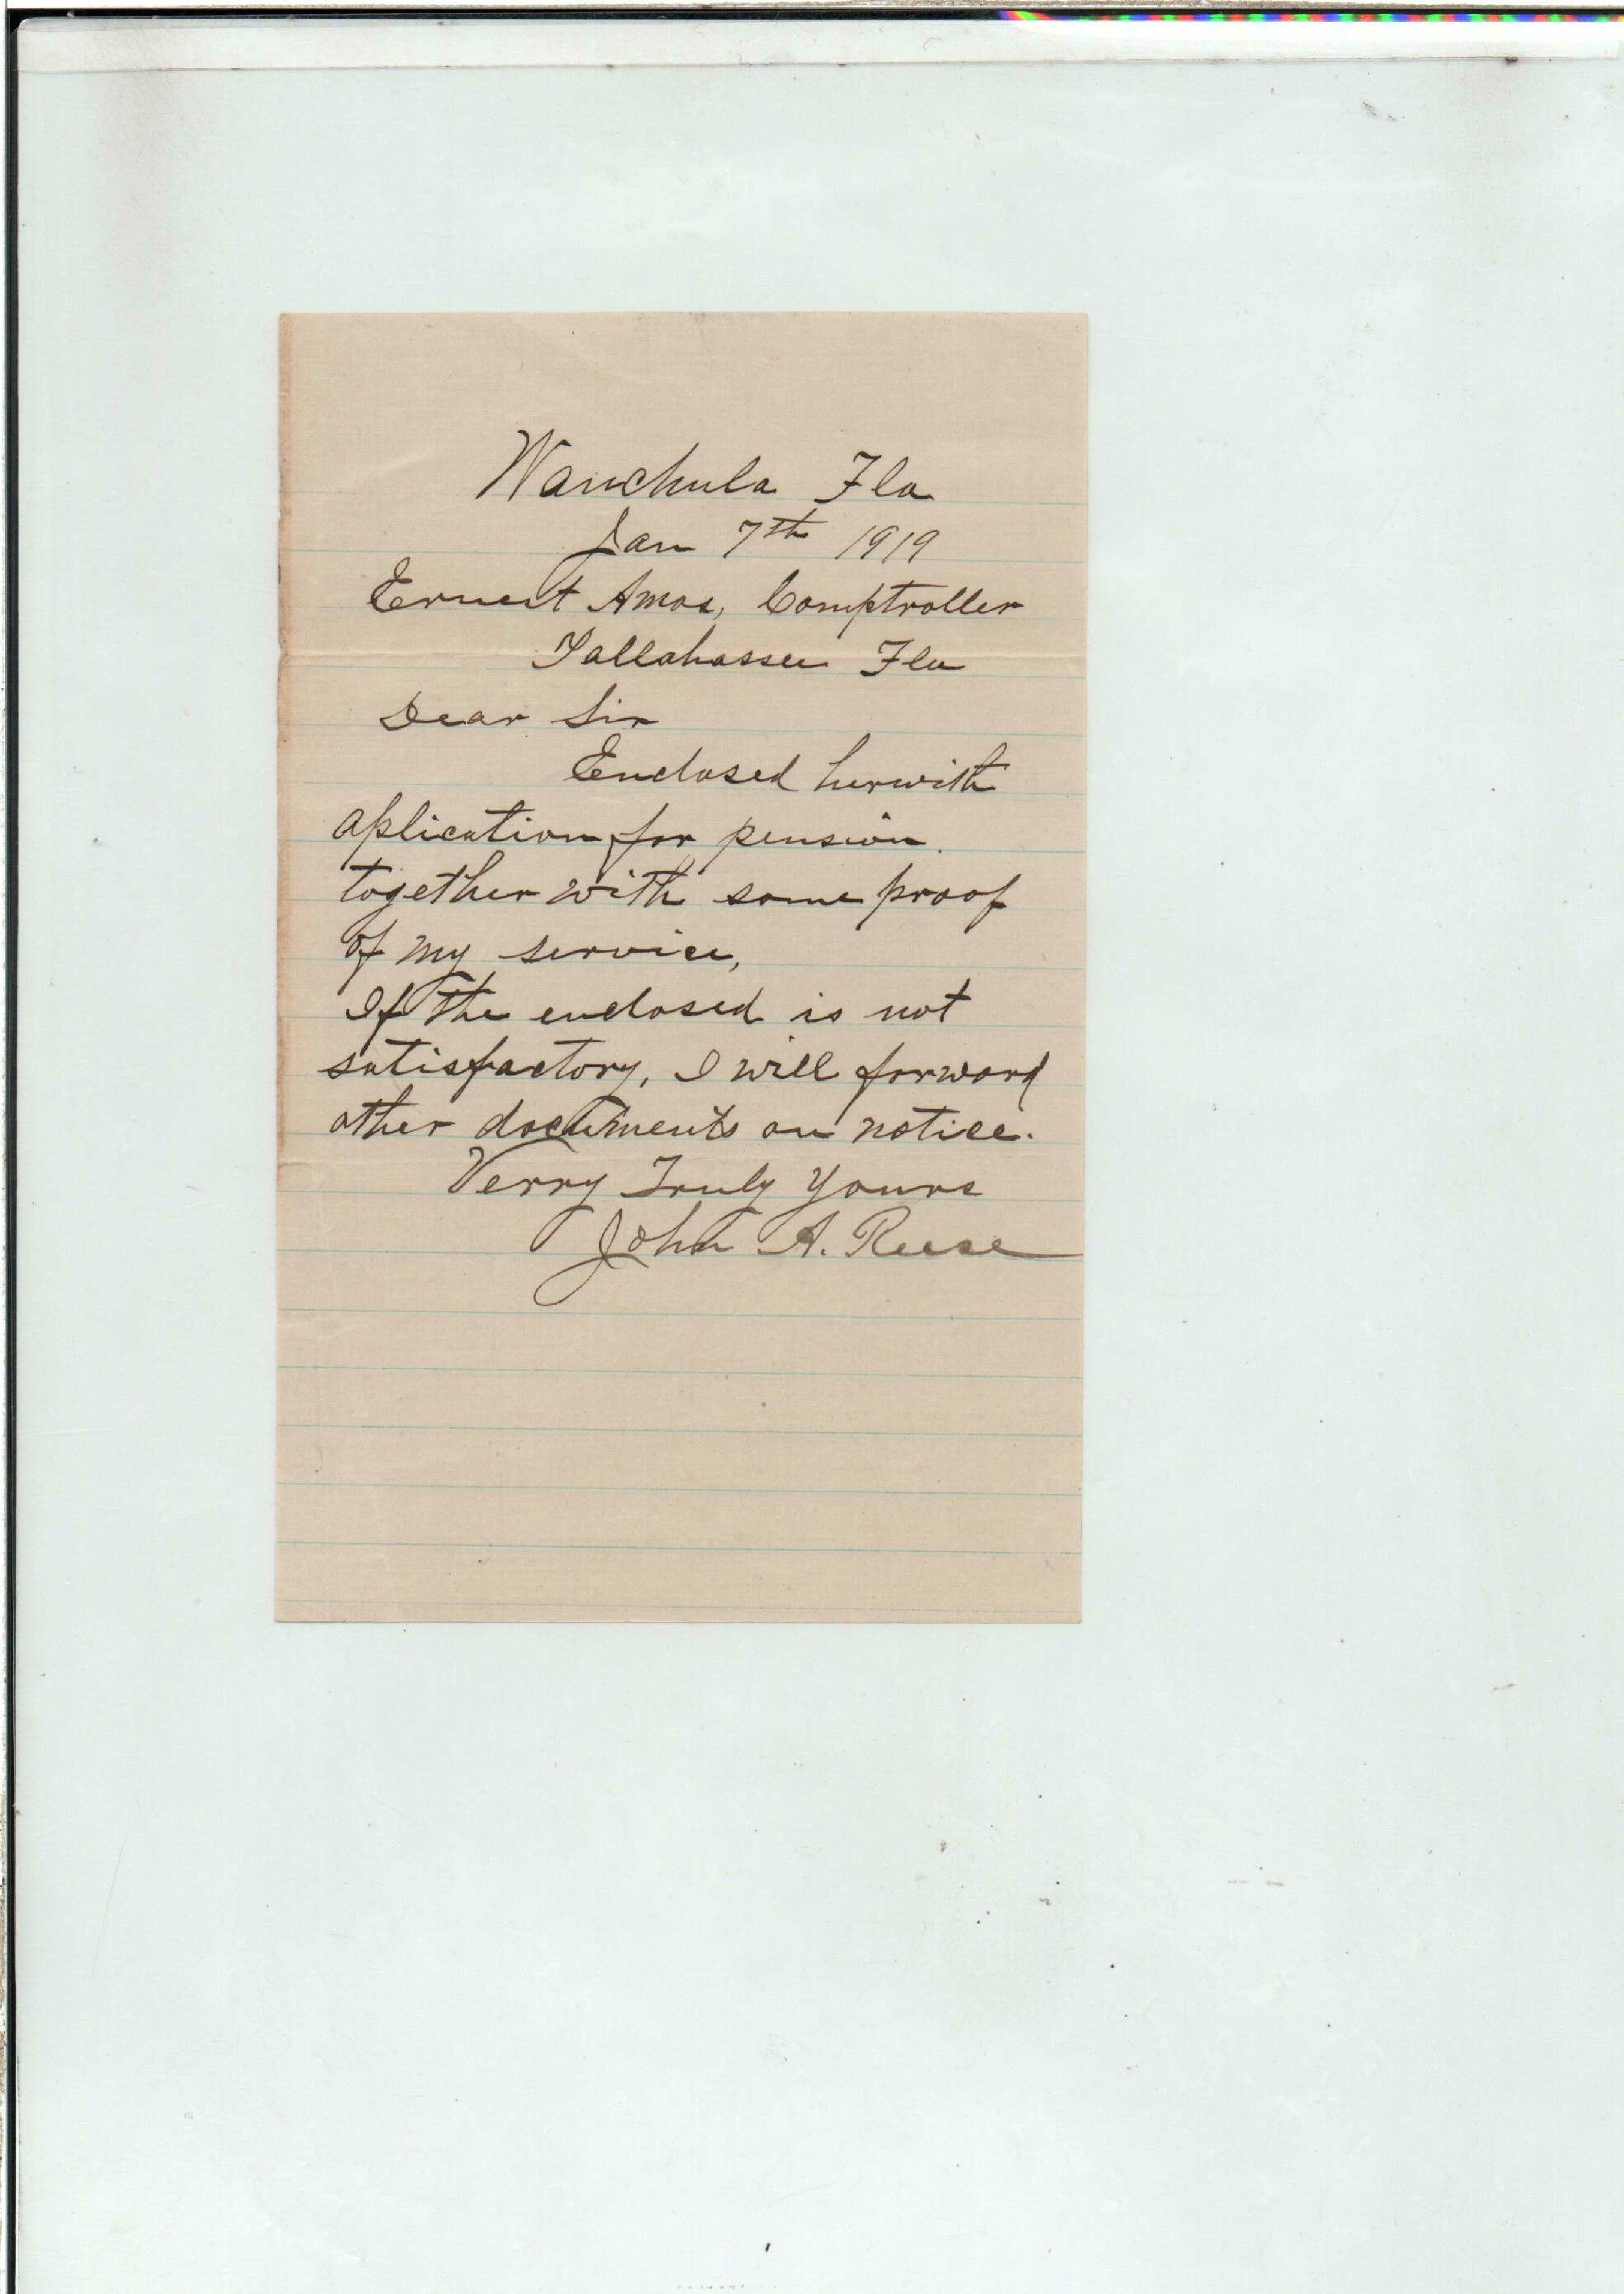 Wauchula Fla
Jan 7th 1919
Ernest Amos, Comptroller
Tallahassee Fla
Dear Sir
Enclosed herwith
aplication for pension.
together with some proof
of my service,
If the enclosed is not
satisfactory, I will forward
other documents on notice.
Verry Truly Yours
John A. Reese